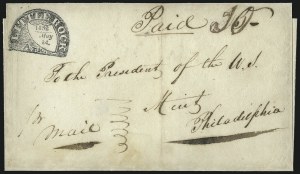 LITTLE ROCK
May
Paid
To the President of the U.S.
Mint
Philadelphia
Mail